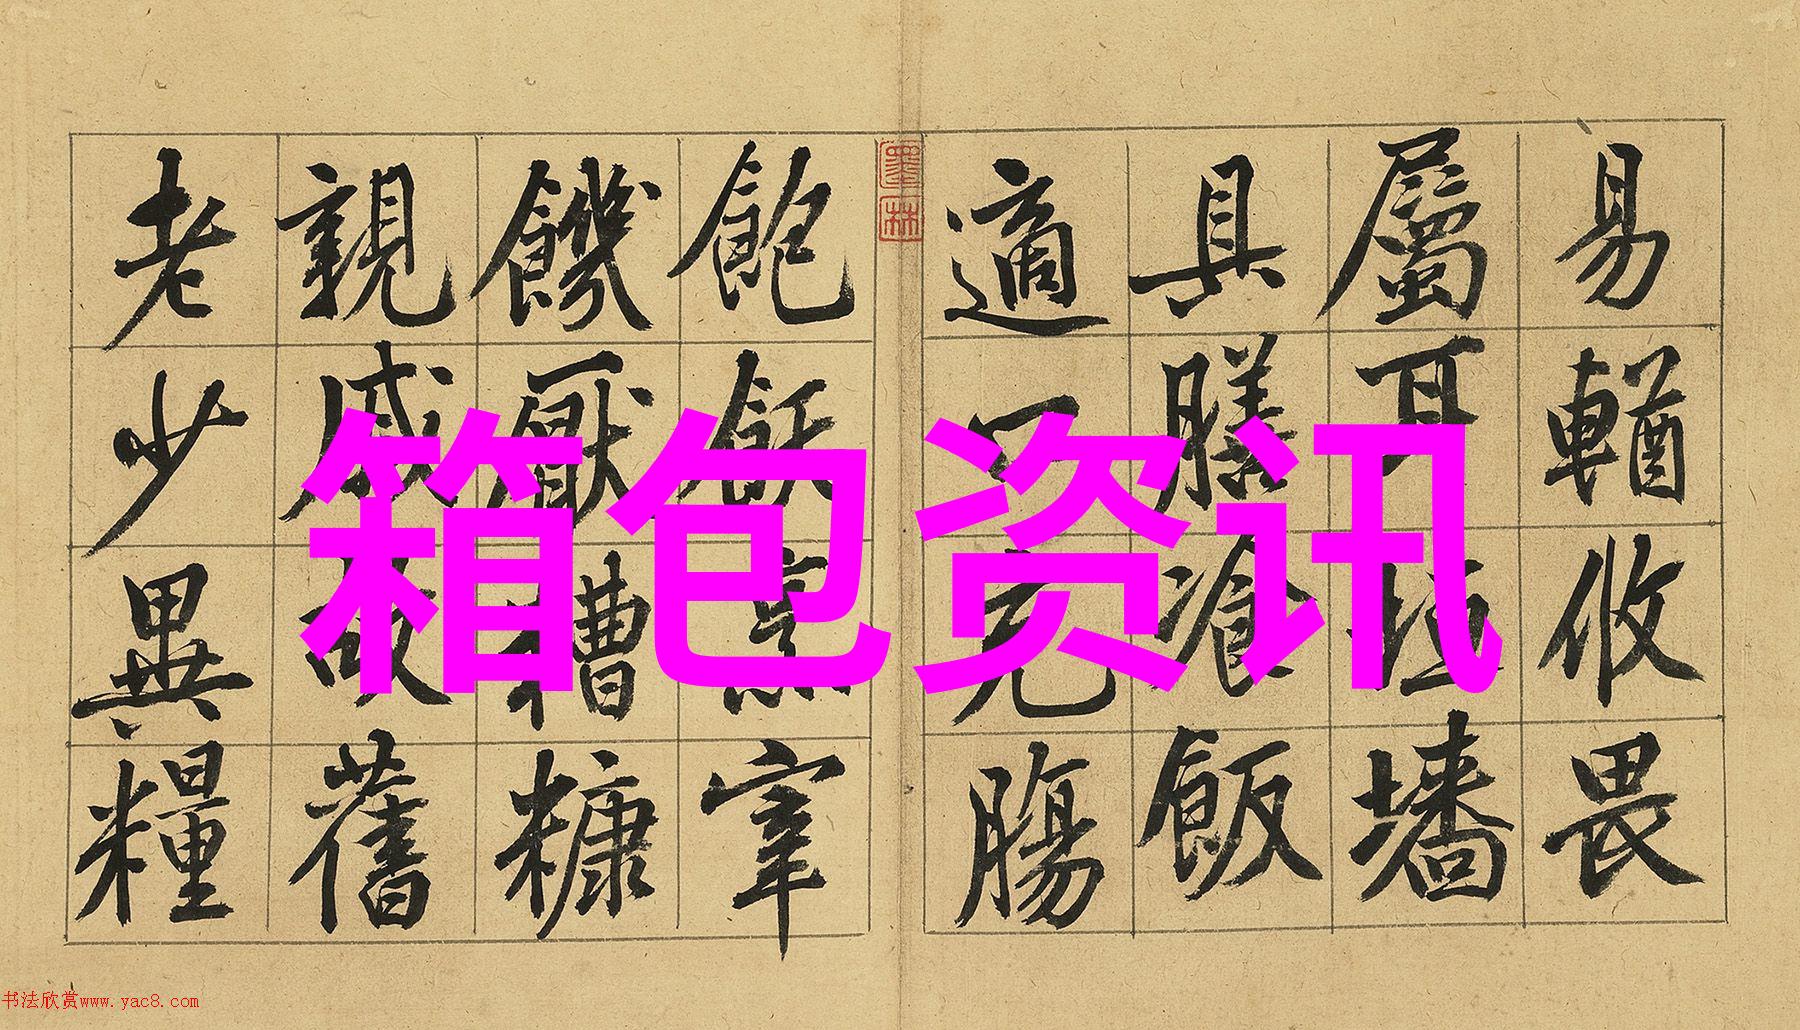 易輶攸畏
屬耳垣墻
具膳飡飯
適口充腸
墨林
飽飫烹宰
饑厭糟糠
親戚故舊
老少異糧
箱包资讯
书法欣赏www.yac8.com